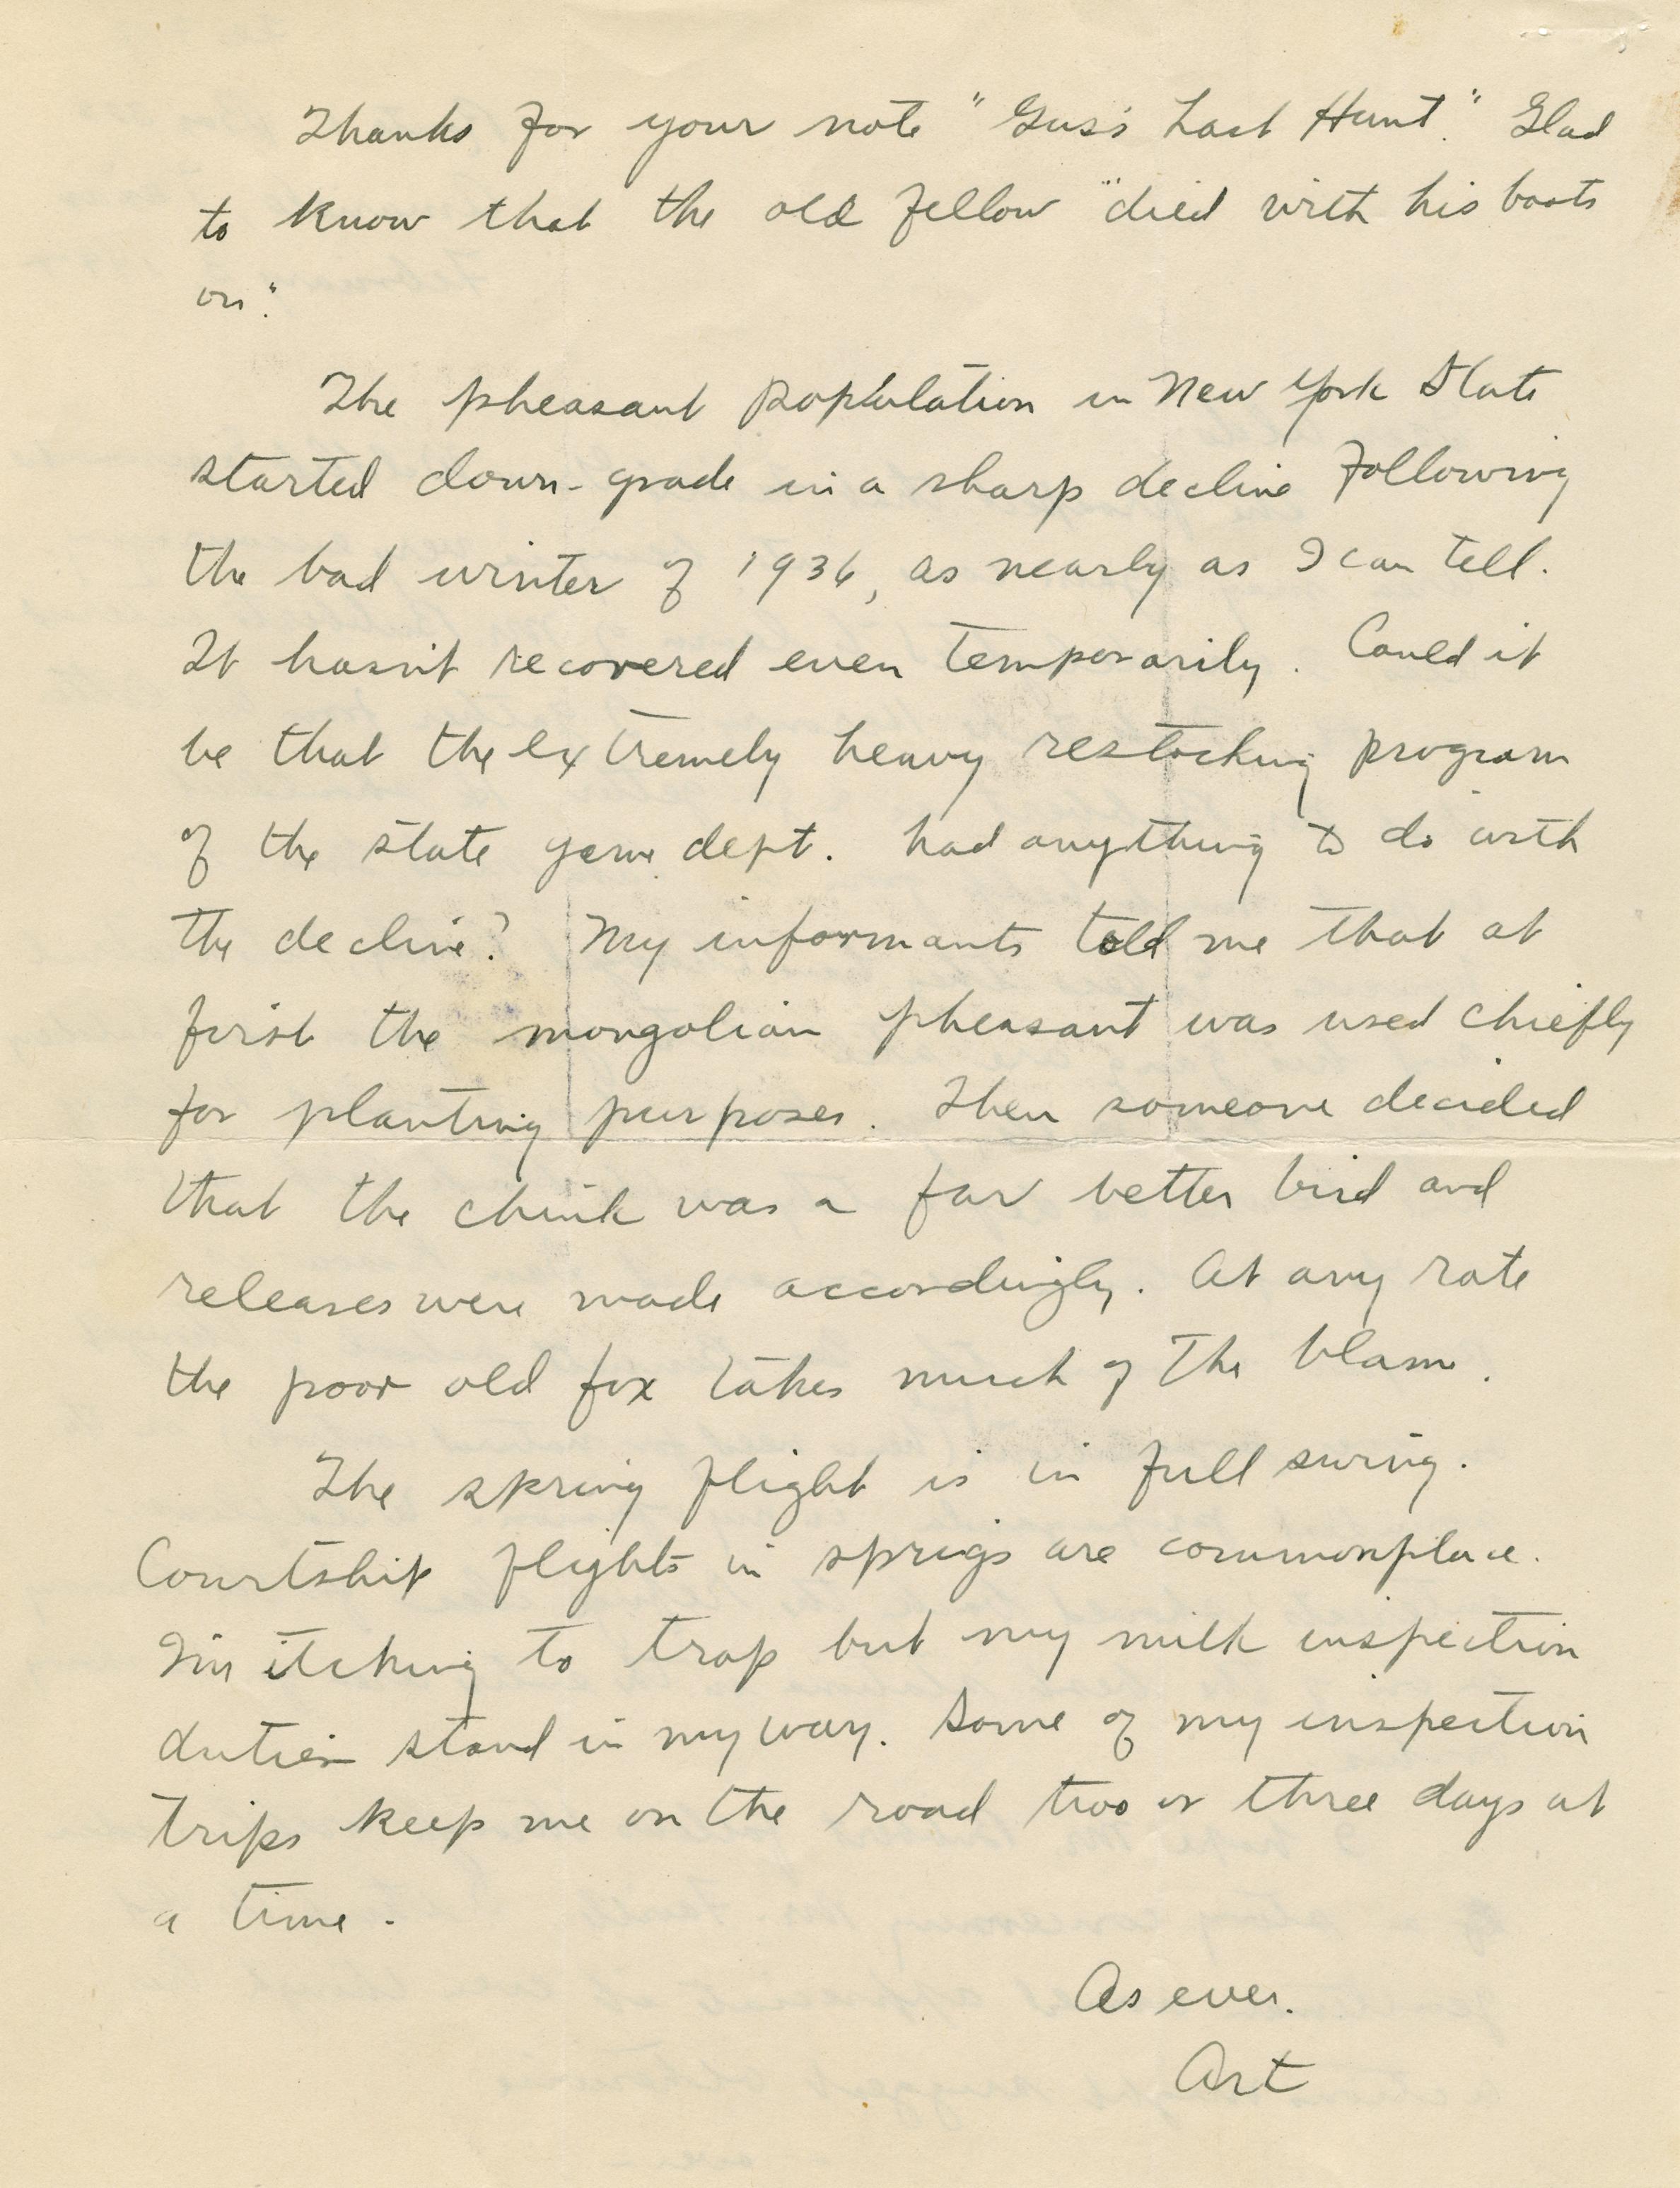 Thanks for your note "Gus's Last Hunt." Glad
to know that the old fellow "died with his boots
on".
The pheasant population in New York State
started down-grade in a sharp decline following
the bad winter of 1936, as nearly as I can tell.
It hasn't recovered even temporarily. Could it
be that the extremely heavy restocking program
of the state game dept. had anything to do with
the decline? My informants told me that at
first the mongolian pheasant was used chiefly
for planting purposes. Then someone decided
that the chink was a far better bird and
releases were made accordingly. At any rate
the poor old fox takes much of the blame.
The spring flight is in full swing.
Courtship flights in sprigs are commonplace.
I'm itching to trap but my milk inspection
duties stand in my way. Some of my inspection
trips keep me on the road two or three days at
a time.
As ever.
Art